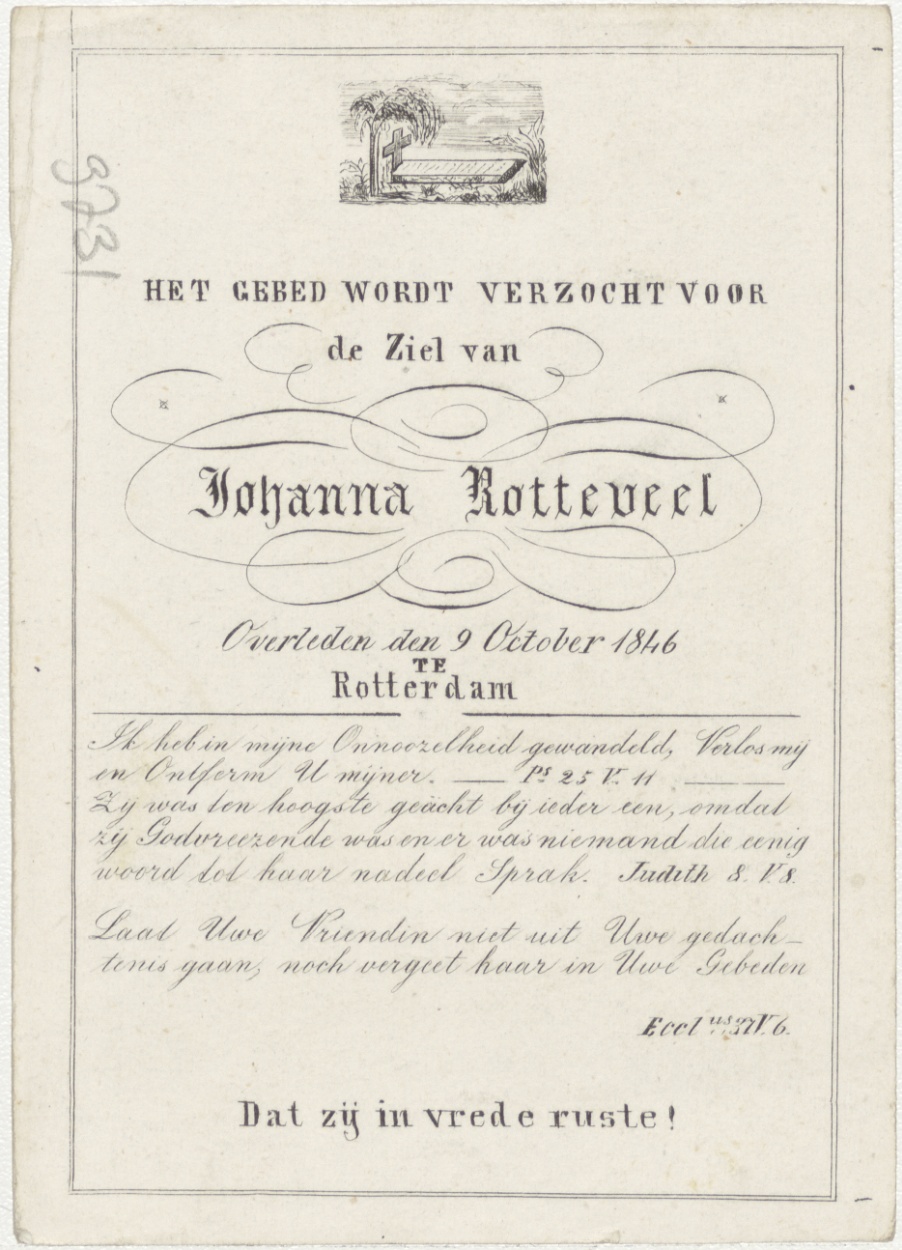 3731
HET GEBED WORDT VERZOCHT VOOR
de Ziel van
Johanna Rotteveel
Overleden den 9 October 1846
TE
Rotterdam
Ik heb in mijne Onnoozelheid gewandeld, Verlos mij
en Ontferm U mijner. — Ps 25 V. 11 —
Zij was ten hoogste geächt bij ieder een, omdat
zij Godvreezende was en er was niemand die eenig
woord tot haar nadeel Sprak. Judith 8. V. 8.
Laat Uwe Vriendin niet uit Uwe gedach-
tenis gaan, noch vergeet haar in Uwe Gebeden
Eccl us 37 V. 6.
Dat zij in vrede ruste!